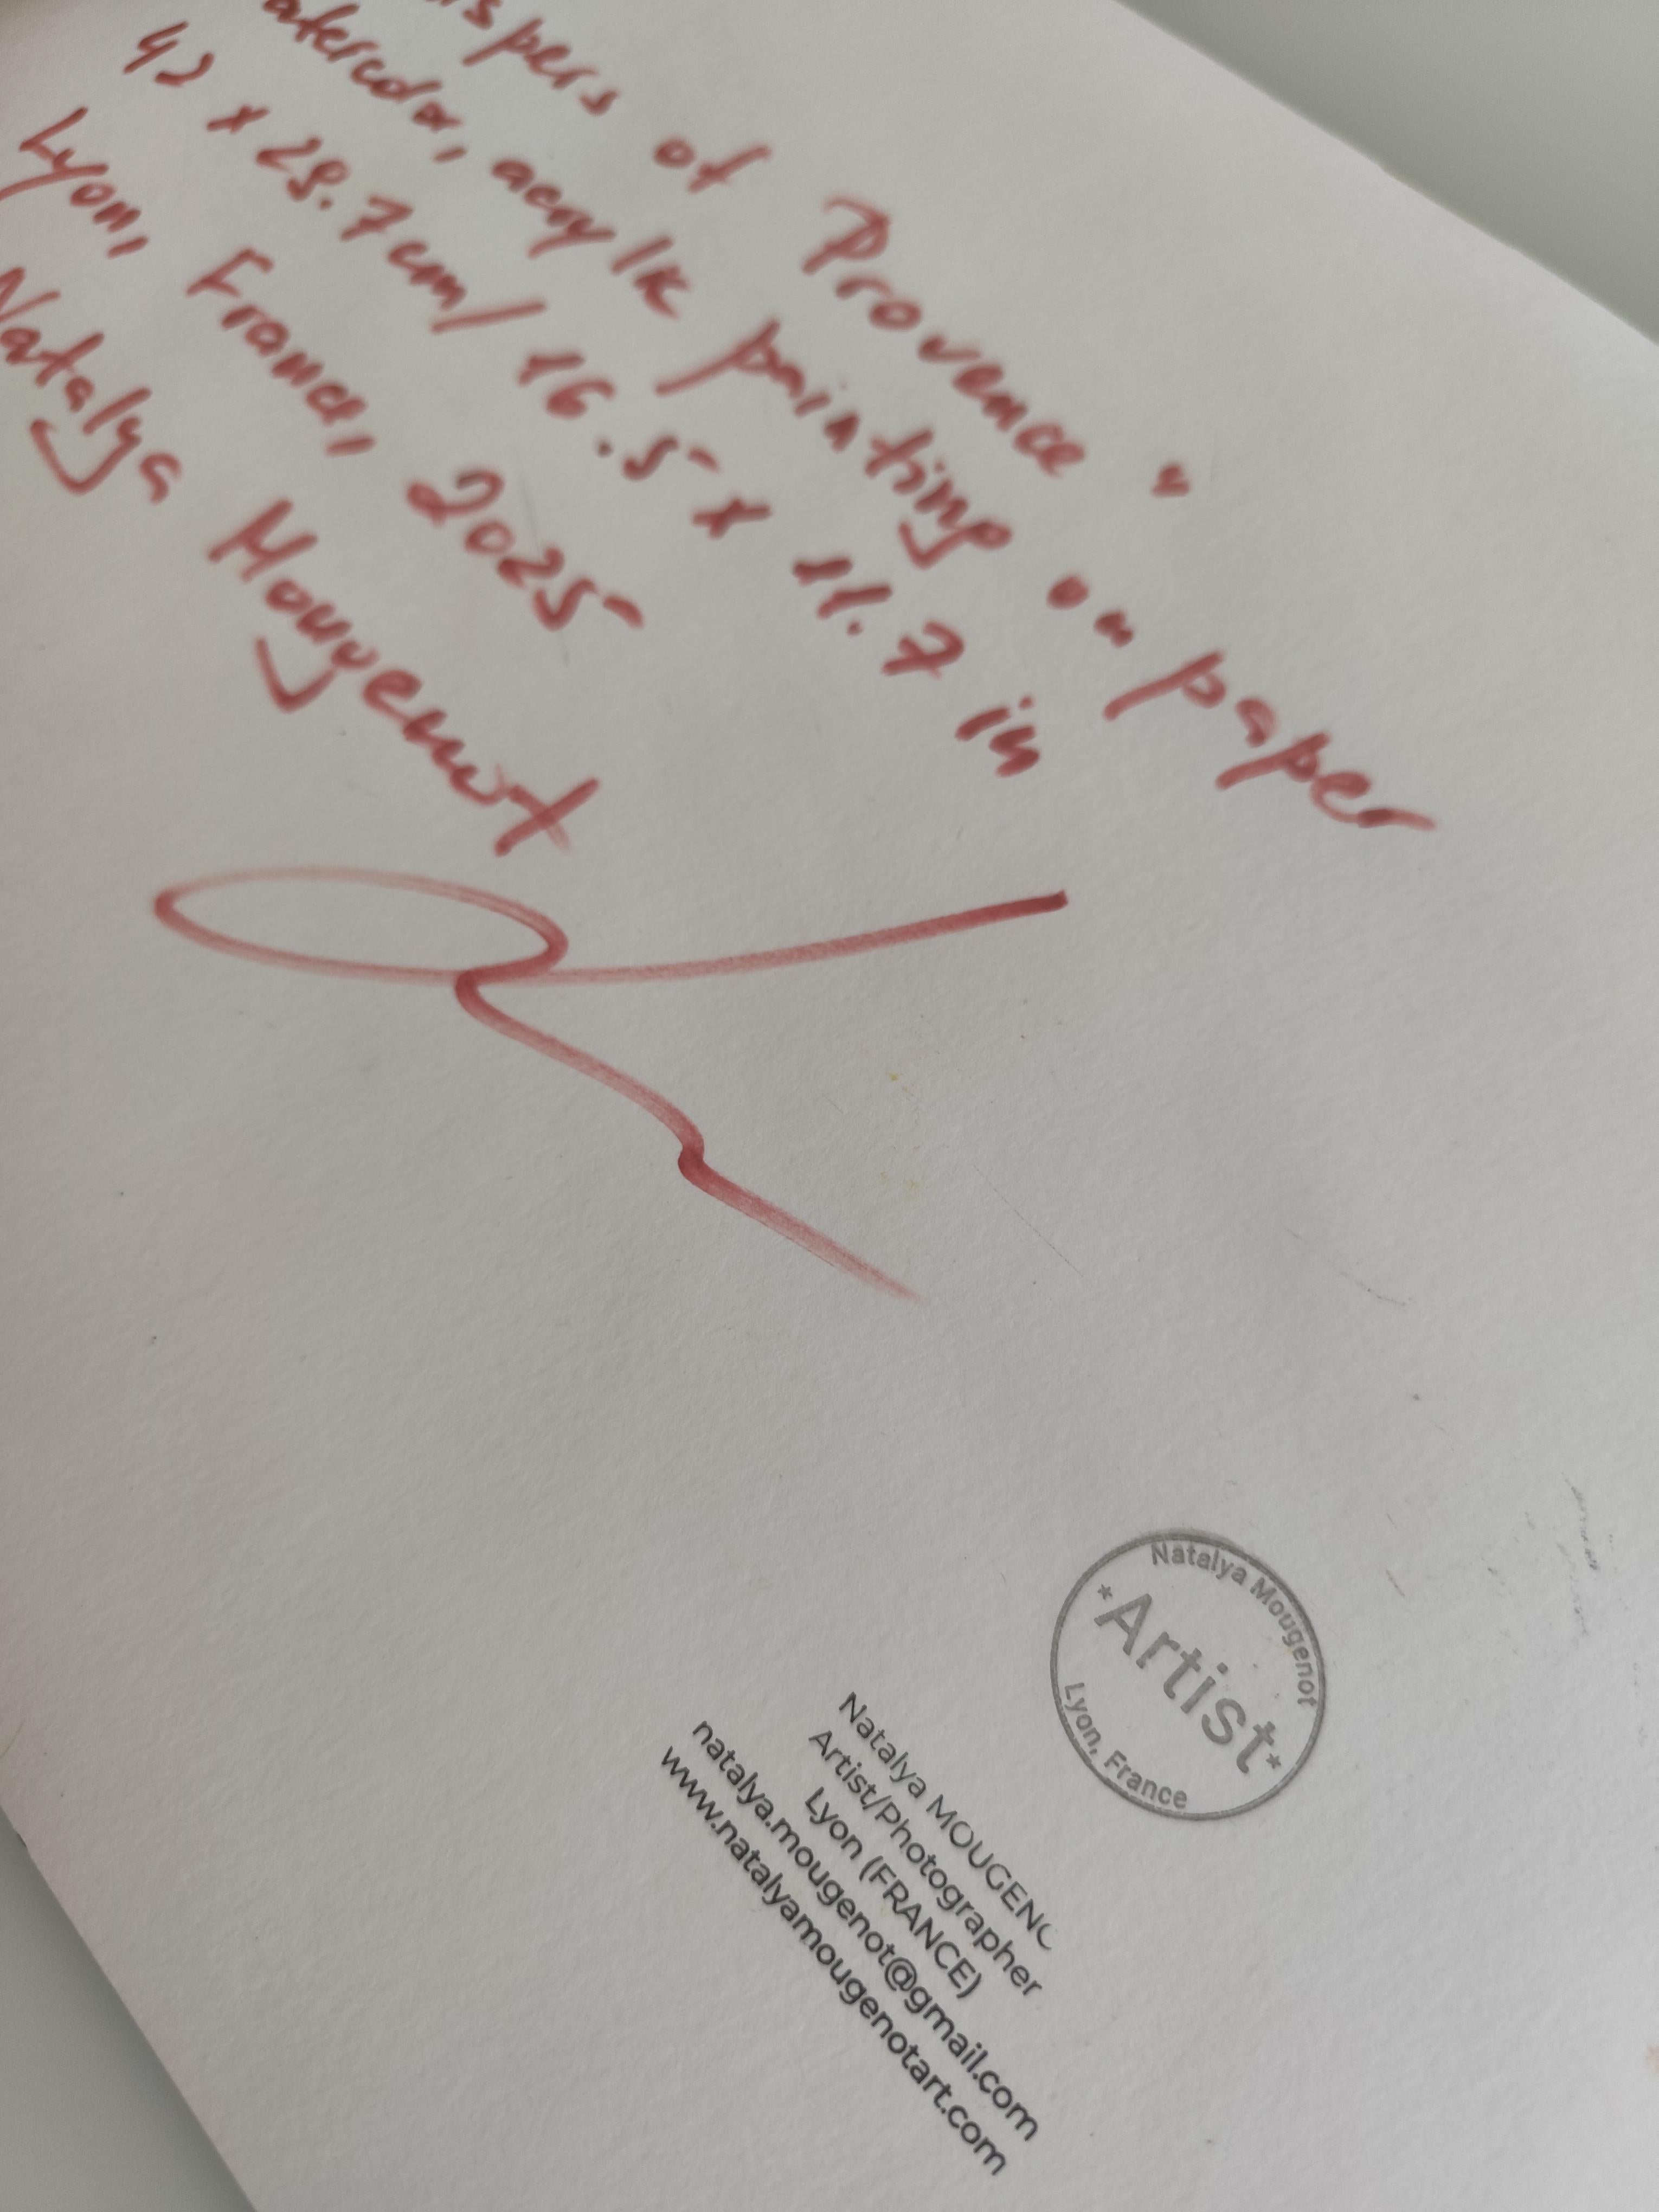 of Provence"
acrylic painting on paper
42 x 29.7 cm / 16.5 x 11.7 in
Lyon, France, 2025
Natalya Mougenot
Natalya Mougenot
*Artist*
Lyon, France
Natalya MOUGENO
Artist/Photographer
Lyon (FRANCE)
natalya.mougenot@gmail.com
www.natalyamougenotart.com